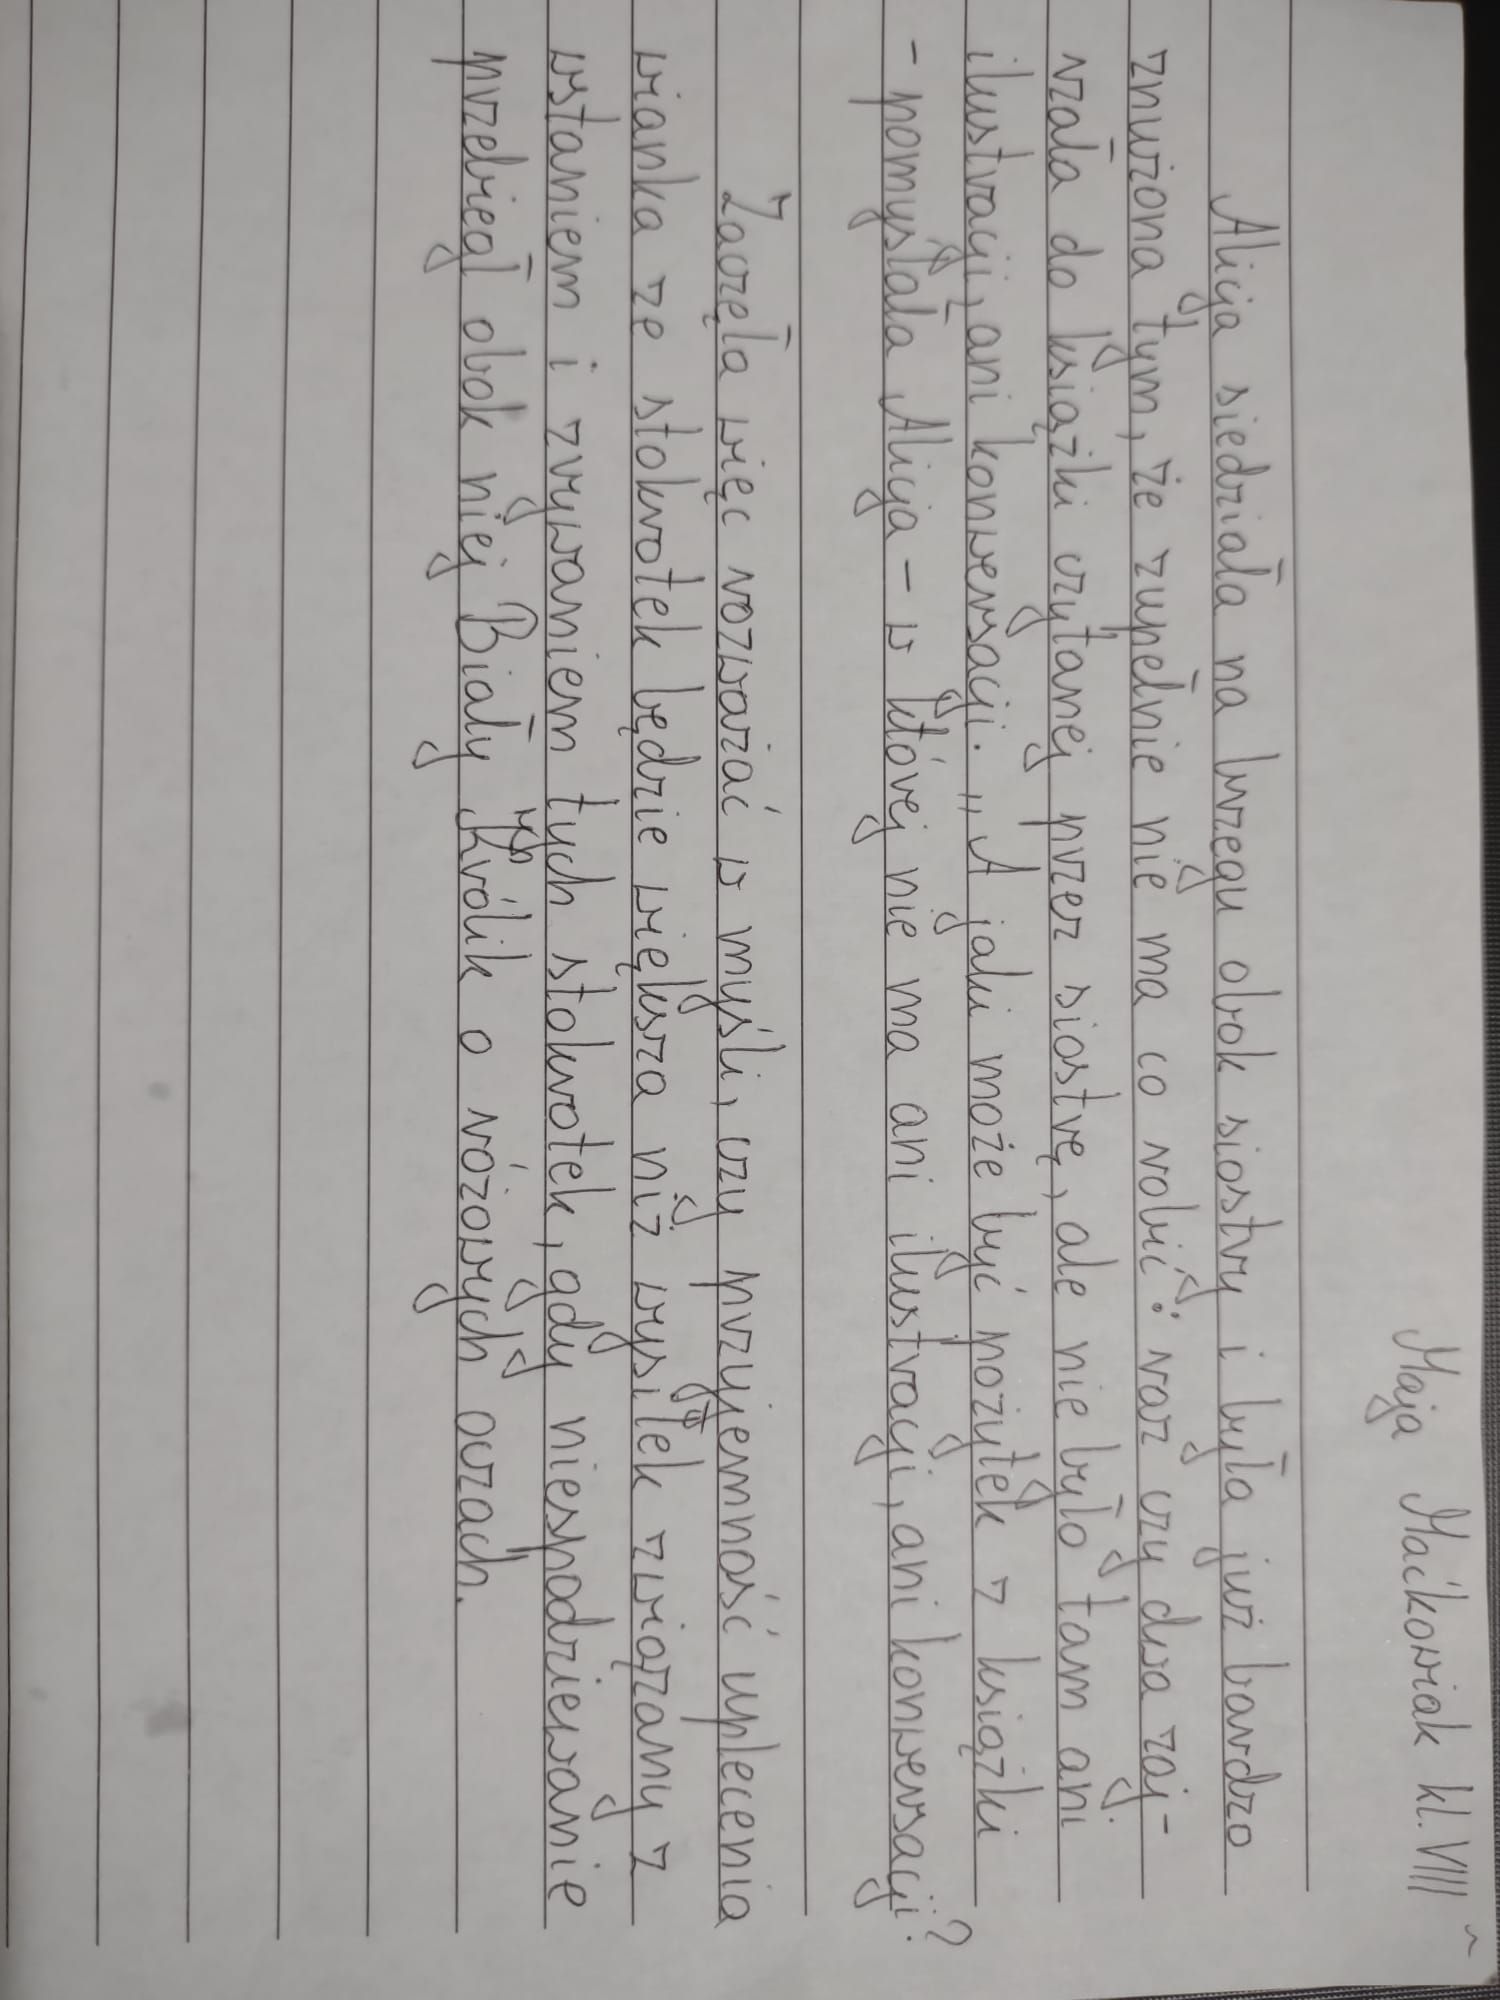 Maja Maćkowiak kl. VIII
Alicja siedziała na brzegu obok siostry i była już bardzo
znużona tym, że zupełnie nie ma co robić: raz czy dwa zaj-
rzała do książki czytanej przez siostrę, ale nie było tam ani
ilustracji, ani konwersacji. „A jaki może być pożytek z książki
- pomyślała Alicja - w której nie ma ani ilustracji, ani konwersacji?
Zaczęła więc rozważać w myśli, czy przyjemność uplecenia
wianka ze stokrotek będzie większa niż wysiłek związany z
wstaniem i zrywaniem tych stokrotek, gdy niespodziewanie
przebiegł obok niej Biały Królik o różowych oczach.